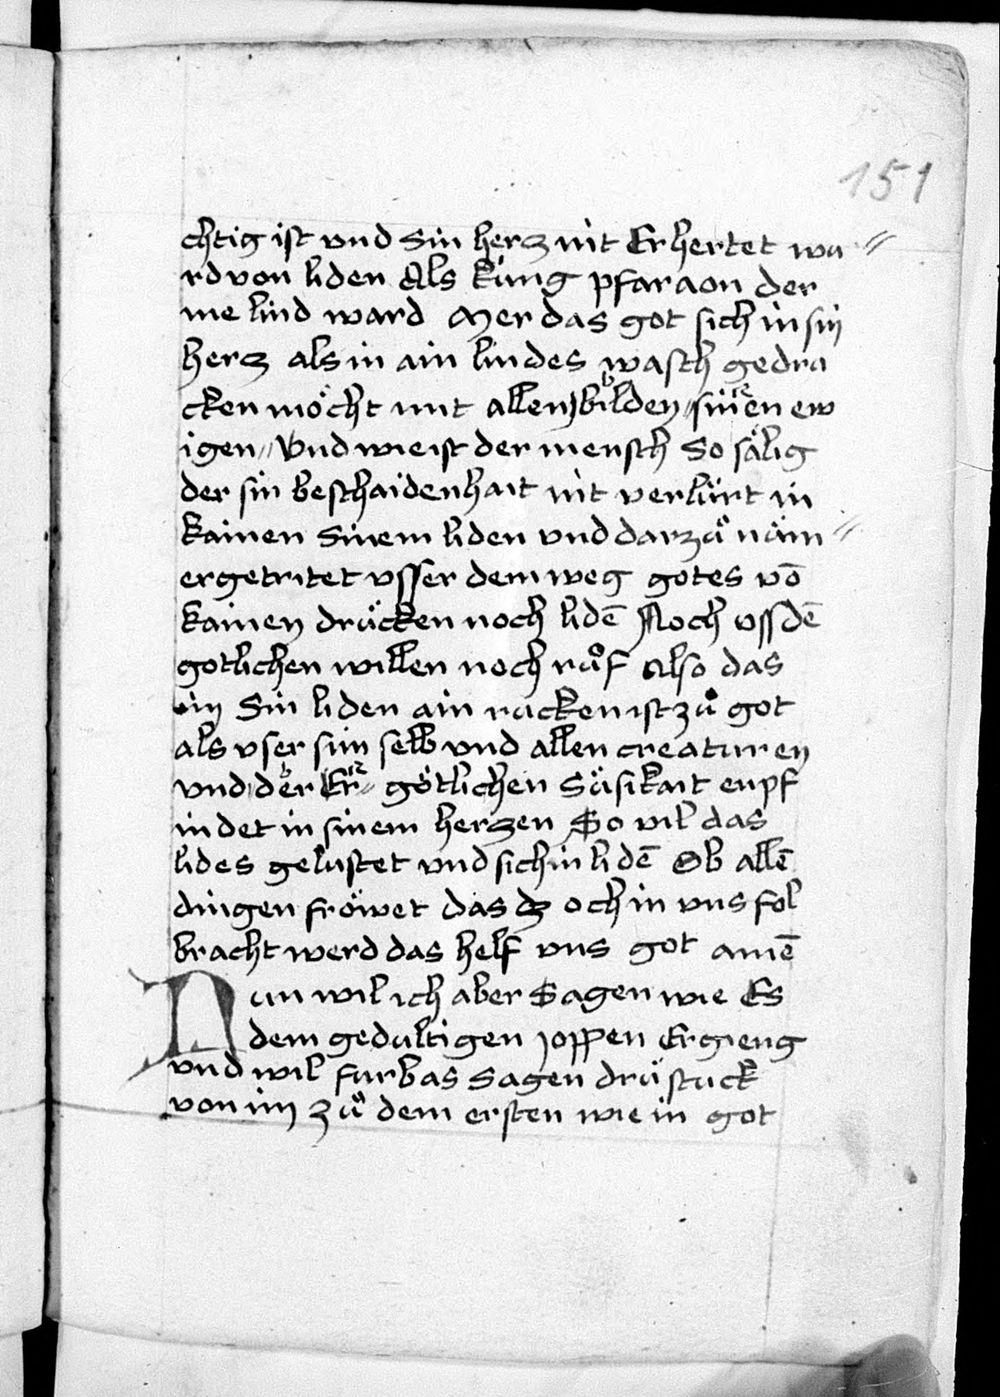 151
chtig ist vnd Sin herz nit Erhertet wa //
rd von liden Als kúng pfaraon der
me lind ward Mer das got sich in sin
herz als in ain lindes wasch gedru
cken möcht mit allen bilden sinen ew
igen // Vnd wie ist der mensch So sälig
der sin beschaidenhait nit verlúrt in
kainen Sinem liden vnd darzuͦ näm //
er getritet vsser dem weg gotes vō
kainen drúcken noch lidē Noch vss dē
gotlichen willen noch ruͦf Also das
im Sin liden ain rucken ist zuͦ got
als vser sim selb vnd allen creaturen
vnd der Er götlichen Säsikait enpf
indet in sinem herzen So vil das
lides gelustet vnd sich in lidē Ob allē
dingen fröwet das dz och in vns fol
bracht werd das helf vns got amē
Nun wil ich aber Sagen wie Es
dem gedultigen joppen Ergieng
vnd wil furbas Sagen drú stuck
von im zuͦ dem ersten wie in got